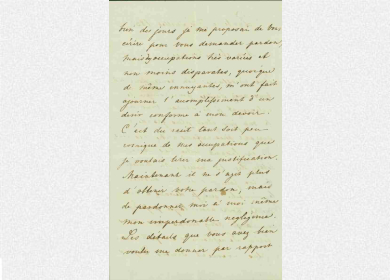 bien des jours je me proposai de vous
écrire pour vous demander pardon,
mais occupations très variées et
non moins desparates, quoique
de même ennuyantes, m'ont fait
ajourner l'acomplissement d'un
désir conforme à mon devoir.
C'est du récit tant soit peu
comique de mes occupations que
je voulais tirer ma justification.
Maintenant il ne s'agit plus
d'obtenir votre pardon, mais
de pardonner moi à moi même
mon impardonable negligence
Les détails que vous avez bien
voulu me donner par rapport